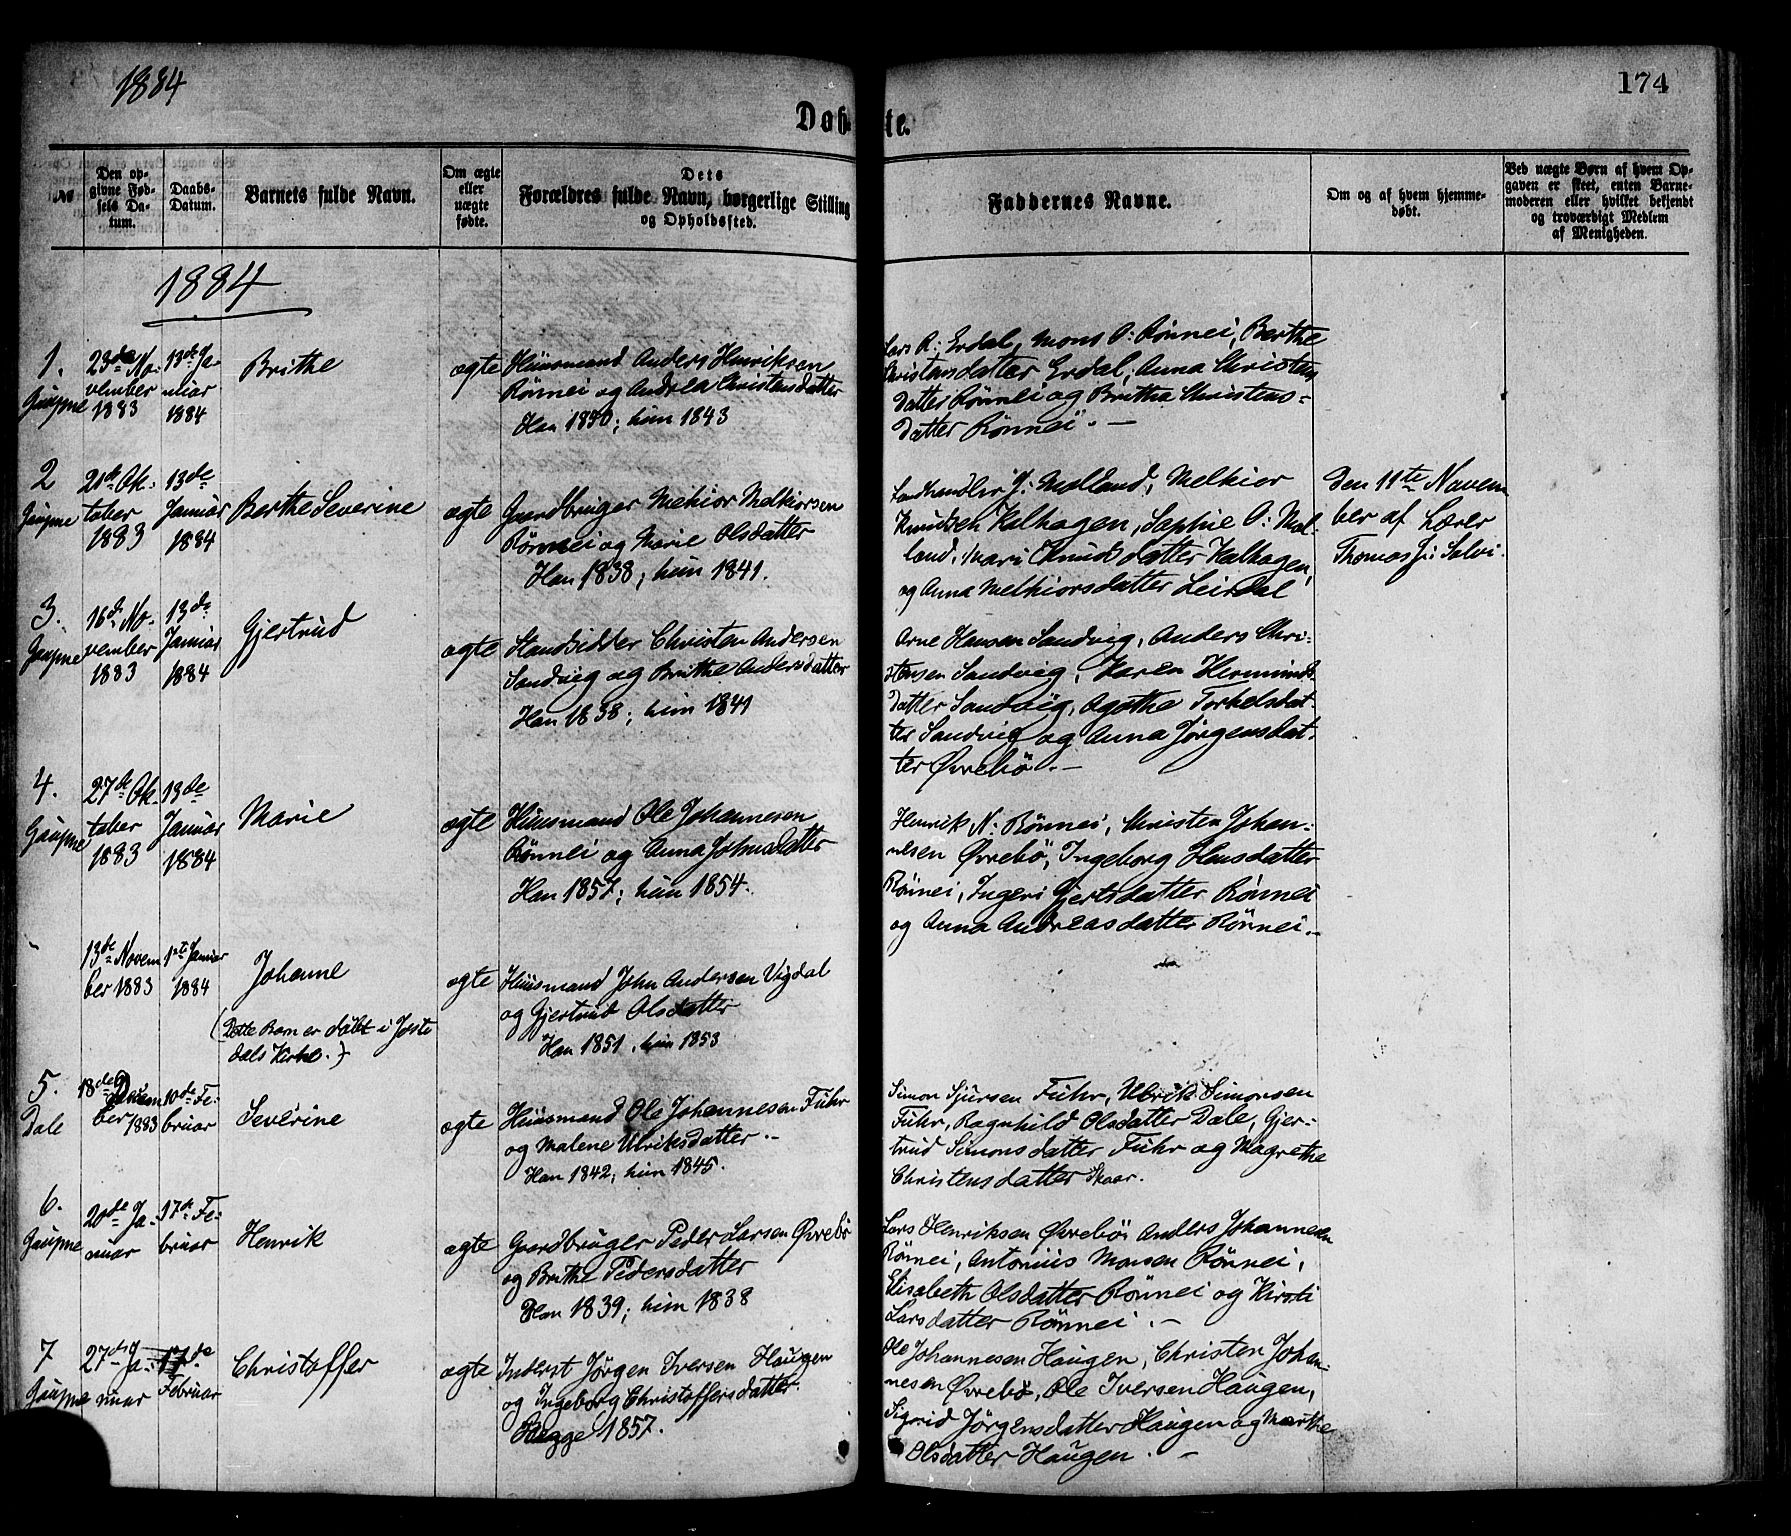 1884
174
Døbte.
№
Den op-
givne Fød-
sels Da-
tum.
Daabs-
Datum.
Barnets fulde Navn.
Om ægte
eller
uægte
fødte.
Dets
Forældres fulde Navn, borgerlige Stilling
og Opholdssted.
Faddernes Navne.
Om og af hvem hjemme-
døbt.
Ved uægte Børn af hvem Op-
gaven er skeet, enten Barne-
moderen eller hvilket bekjendt
og troværdigt Medlem
af Menigheden.
1884
1.
Gaupne
23de No-
vember
1883
13de Ja-
nuar
1884
Brithe
ægte
Huusmand Anders Henriksen
Rønnei og Andrea Christensdatter
Han 1850; hun 1843
Lars R: Erdal, Mons O: Rønnei, Berthe
Christensdatter Erdal, Anna Christens
datter Rønnei og Brithe Christens-
datter Rønnei. —
2
Gaupne
21de Ok-
tober
1883
13de
Januar
1884
Berthe Severine
ægte
Gaardbruger Melkior Melkiorsen
Rønnei og Marie Olsdatter
Han 1838; hun 1841.
Landhandler J: Molland, Melkior
Knudsen Kalhagen, Sophie O: Mol-
land, Mari Knudsdatter Kalhagen,
og Anna Melkiorsdatter Leirdal
Den 11te Novem
ber af Lærer
Thomas J: Solvi.
3.
Gaupne
16de No-
vember
1883
13de
Januar
1884
Gjertrud
ægte
Strandsidder Christen Andersen
Sandvig og Brithe Andersdatter
Han 1838; hun 1841
Arne Hansen Sandvig, Anders Chri-
stensen Sandvig, Karen Hermunds-
datter Sandvig, Agathe Torkelsdat-
ter Sandvig og Anna Jørgensdat-
ter Øvrebø. —
4.
Gaupne
27de Ok-
tober
1883
13de
Januar
1884
Marie
ægte
Huusmand Ole Johannesen
Rønnei og Anna Johnsdatter
Han 1857; hun 1854.
Henrik N: Rønnei, Christen Johan-
nesen Øvrebø, Ingeborg Hansdatter
Rønnei, Ingeri Gjertsdatter Rønnei
og Anna Andreasdatter Rønnei. —
13de Novem
ber 1883
1ste Januar
1884
Johanne
(Dette Barn er døbt i Joste
dals Kirke.)
ægte
Huusmand John Andersen Vigdal
og Gjertrud Olsdatter
Han 1851, hun 1853
5.
Dale
18de Decem
ber 1883
10de Fe-
bruar
Severine
ægte
Huusmand Ole Johannesen Fuhr
og Malene Ulriksdatter. -
Han 1842; hun 1845.
Simon Sjursen Fuhr, Ulrik Simonsen
Fuhr, Ragnhild Olsdatter Dale, Gjer-
trud Simonsdatter Fuhr og Magrethe
Christensdatter Skaar.
6.
Gaupne
20de Ja-
nuar
17de Fe-
bruar
Henrik
ægte
Gaardbruger Peder Larsen Øvrebø
og Brithe Pedersdatter
Han 1839; hun 1838
Lars Henriksen Øvrebø, Anders Johannesen
Rønnei, Antonius Monsen Rønnei,
Elisabeth Olsdatter Rønnei og Kirsti
Larsdatter Rønnei. —
7
Gaupne
27de Ja-
nuar
17de
Februar
Christoffer
ægte
Inderst Jørgen Iversen Haugen
og Ingeborg Christoffersdatter.
Begge 1857.
Ole Johannesen Haugen, Christen Johan-
nesen Øvrebø, Ole Iversen Haugen,
Sigrid Jørgensdatter Haugen og Marthe
Olsdatter Haugen. —